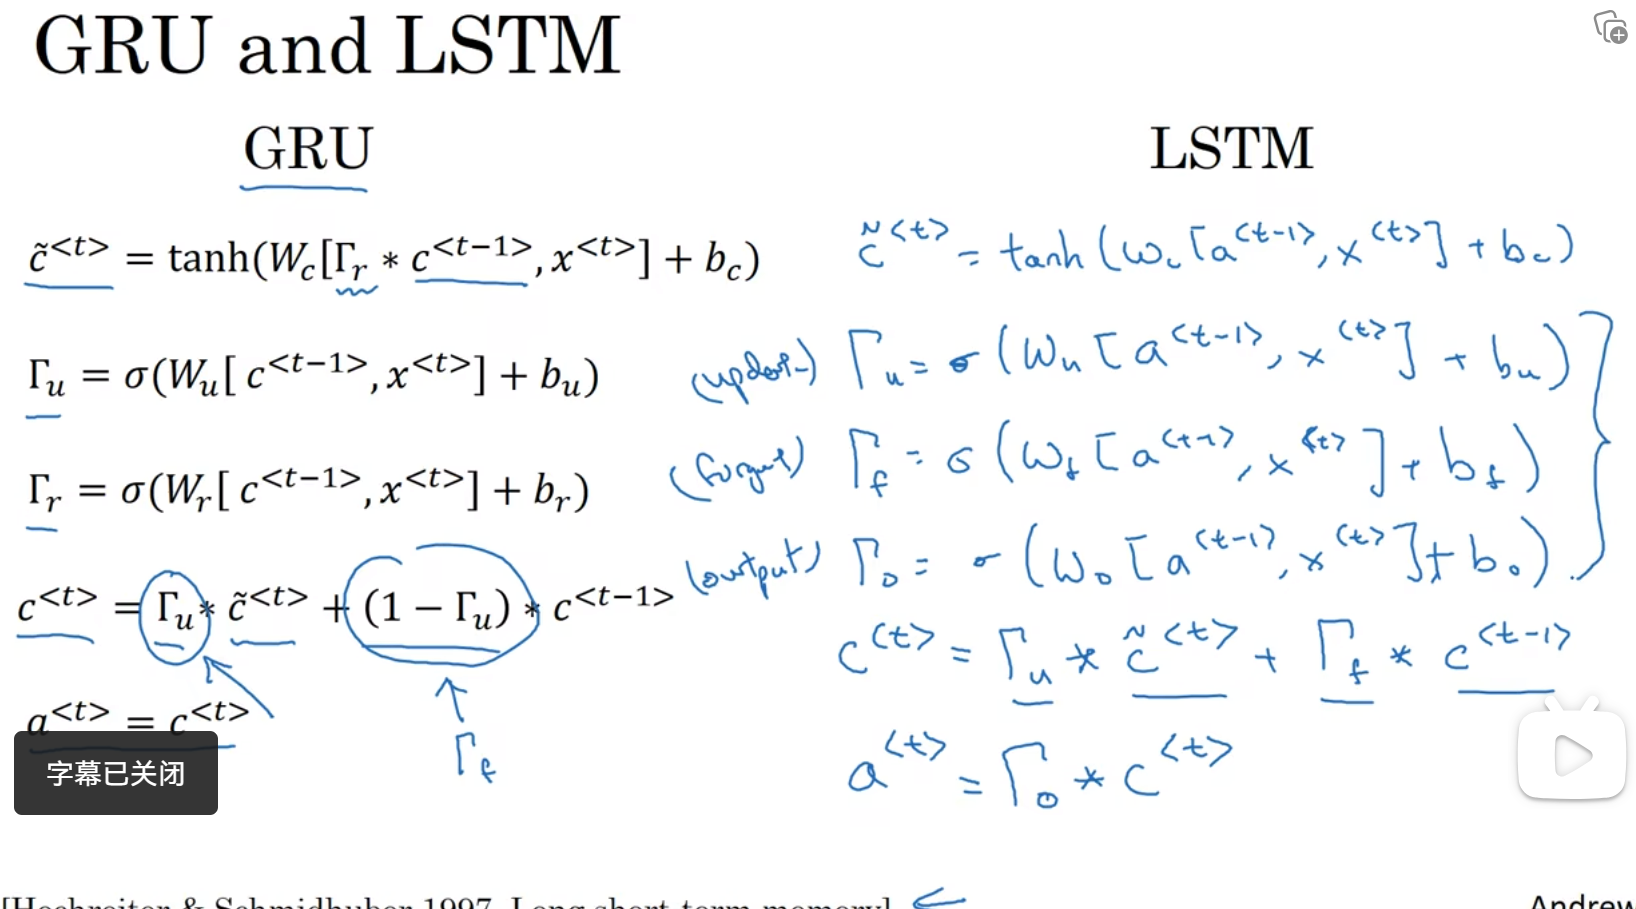 GRU and LSTM
GRU
c̃<t> = tanh(W_c[Γ_r * c<t−1>, x<t>] + b_c)
Γ_u = σ(W_u[ c<t−1>, x<t>] + b_u)
Γ_r = σ(W_r[ c<t−1>, x<t>] + b_r)
c<t> = Γ_u * c̃<t> + (1 − Γ_u) * c<t−1>
a<t> = c<t>
Γ_f
字幕已关闭
LSTM
c̃<t> = tanh(W_c[a<t-1>, x<t>] + b_c)
(update) Γ_u = σ(W_u[a<t-1>, x<t>] + b_u)
(forget) Γ_f = σ(W_f[a<t-1>, x<t>] + b_f)
(output) Γ_o = σ(W_o[a<t-1>, x<t>] + b_o)
c<t> = Γ_u * c̃<t> + Γ_f * c<t-1>
a<t> = Γ_o * c<t>
[Hochreiter & Schmidhuber 1997. Long short-term memory]
Andrew